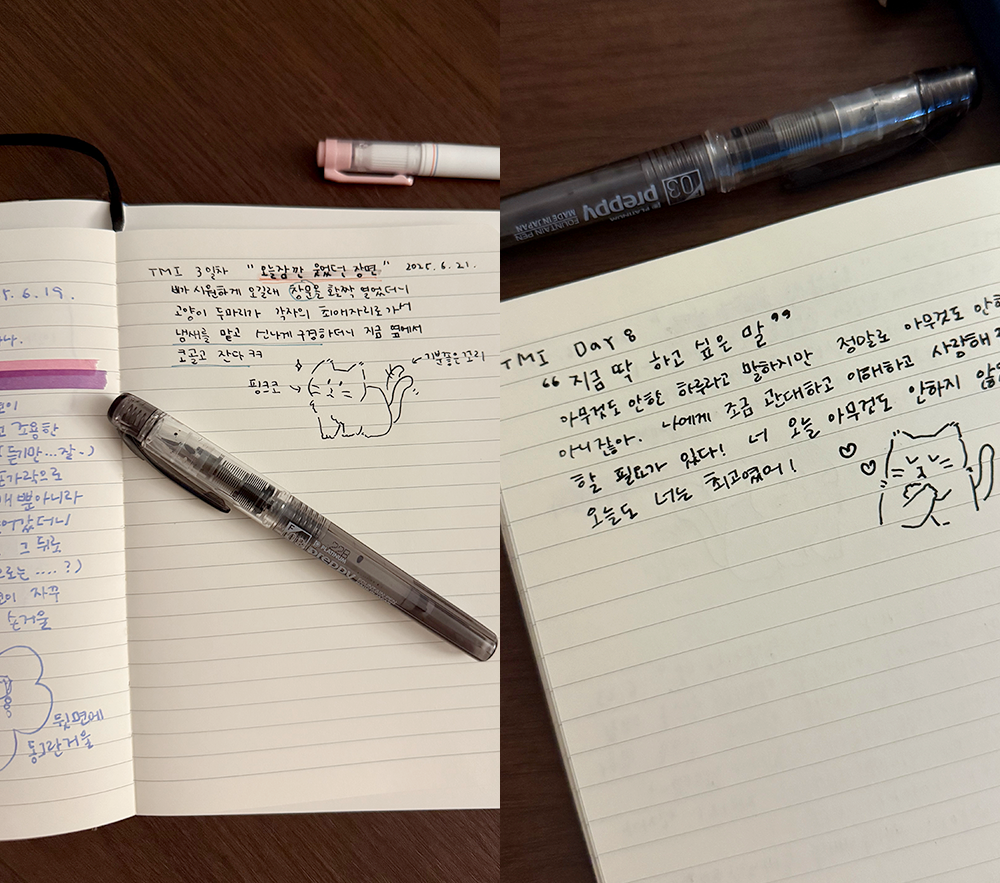 TMI 3일차 "오늘 잠깐 웃었던 장면" 2025.6.21.
비가 시원하게 오길래 창문을 활짝 열었더니
고양이 두마리가 각자의 최애자리로 가서
냄새를 맡고 신나게 구경하더니 지금 옆에서
코골고 잔다 ㅋㅋ
기분좋은 꼬리
핑크코
5.6.19.
고 조용한
듣기만...잘~)
가락으로
개 뿐아니라
어갔더니
그 뒤로
으로는 ....?)
자꾸
손거울
뒷면에
동그란거울
preppy
03
PLATINUM
preppy
FOUNTAIN PEN
MADE IN JAPAN
TMI Day 8
"지금 딱 하고 싶은 말"
아무것도 안한 하루라고 말하지만 정말로 아무것도 안한
아니잖아. 나에게 조금 관대하고 이해하고 사랑해
할 필요가 있다! 너 오늘 아무것도 안하지 않
오늘도 너는 최고였어!